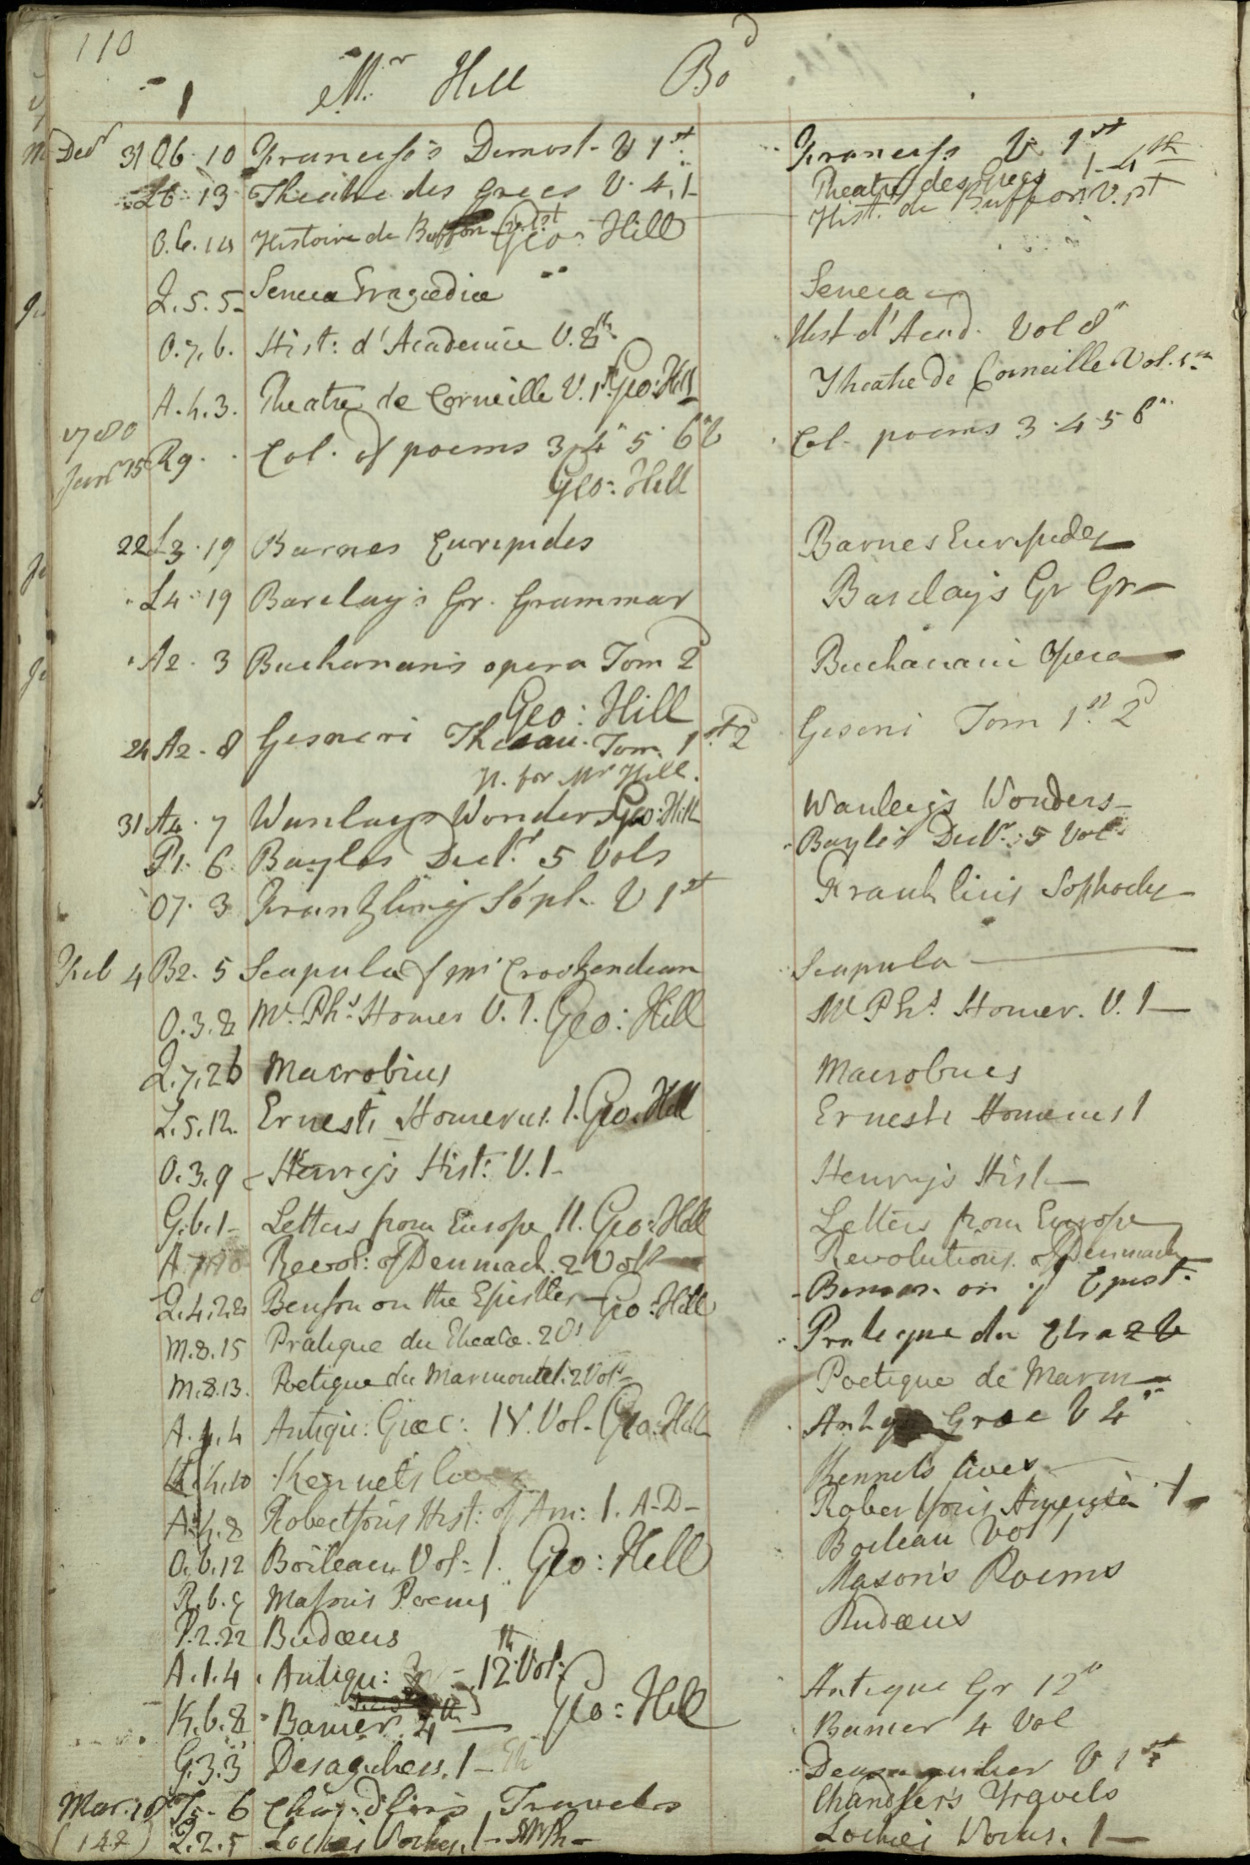 110
1 Mr Hill Bo^d
Decr 31 Q6 . 10 Francis's Demost. V 1st Francis V. 1st
L6 . 13 Theatre des Grecs V. 4, 1 Theatre des Grecs 1-4th
O.6.10 Histoire de Buffon Vol. 1st Geo: Hill Hist. de Buffon V. 1st
Q.5.5 Seneca Tragœdiæ Seneca
O.7.6. Hist: d'Academie V. 8th Hist d'Acad. Vol 8th
A.4.3. Theatre de Corneille V. 1st Geo: Hill Theatre de Corneille Vol. 1st
1780
Janr 15 R9 . . Col. of poems 3. 4 5 6 V Col. poems 3.4.5 6
Geo: Hill
22 L3 . 19 Barnes Euripides Barnes Euripides
L4 . 19 Barclay's Gr. Grammar Barclays Gr Gr
A2 . 3 Buchanan's opera Tom 2d Buchanani Opera
Geo: Hill
24 A2 . 8 Gesneri Thesau. Tom 1st 2 Gesneri Tom 1st 2d
for Mr Hill.
31 A4 . 7 Wanlays Wonders Geo: Hill Wanley's Wonders
P1 . 6 Bayles Dict. 5 Vols Bayle's Dictr. 5 Vols
O7 . 3 Franklins Soph. V 1st Franklins Sophocles
Feb 4 B2 . 5 Scapula Mr Crookendean Scapula
O.3.8 Mc.Phs Homer V. 1. Geo: Hill Mc Phs Homer. V. 1
Q.7.26 Macrobius Macrobius
L.5.12. Ernesti Homerus. 1. Geo: Hill Ernesti Homerus 1
O.3.9 Henry's Hist: V. 1 Henry's Hist
G.6.1 Letters from Europe 11. Geo: Hill Letters from Europe
A Revol: of Denmark. 2 Vols Revolutions of Denmark
Q.4.22 Benson on the Epistles Geo: Hill Benson on ye Epist.
M.8.15 Pratique du Theatre. 2 Vs Pratique du Thea 2 V
M.8.13. Poetique du Marmontel. 2 Vols Poetique de Marm
A.4.4 Antiqu: Græc: IV. Vol. Geo: Hill Antq Græc V 4th
K.4.10 Kennets lives Kennets lives
A.4.8 Robertson's Hist: of Am: 1. A-D- Robertson's America 1
O.6.12 Boileau Vol- 1. Geo: Hill Boileau Vol 1
R.6.9 Mason's Poems Mason's Poems
P.2.22 Budæus Budæus
A.1.4 Antiqu: 12th Vol: Antiquæ Gr 12th
K.6.8 Banier 4th Geo: Hill Banier 4 Vol
G.3.3 Desaguliers. 1 Desaugulier V 1st
Mar. 10 I5 . 6 Chandler's Travels Chandler's Travels
(142) Q.2.5 Locke's Works. 1 Locke's Works. 1